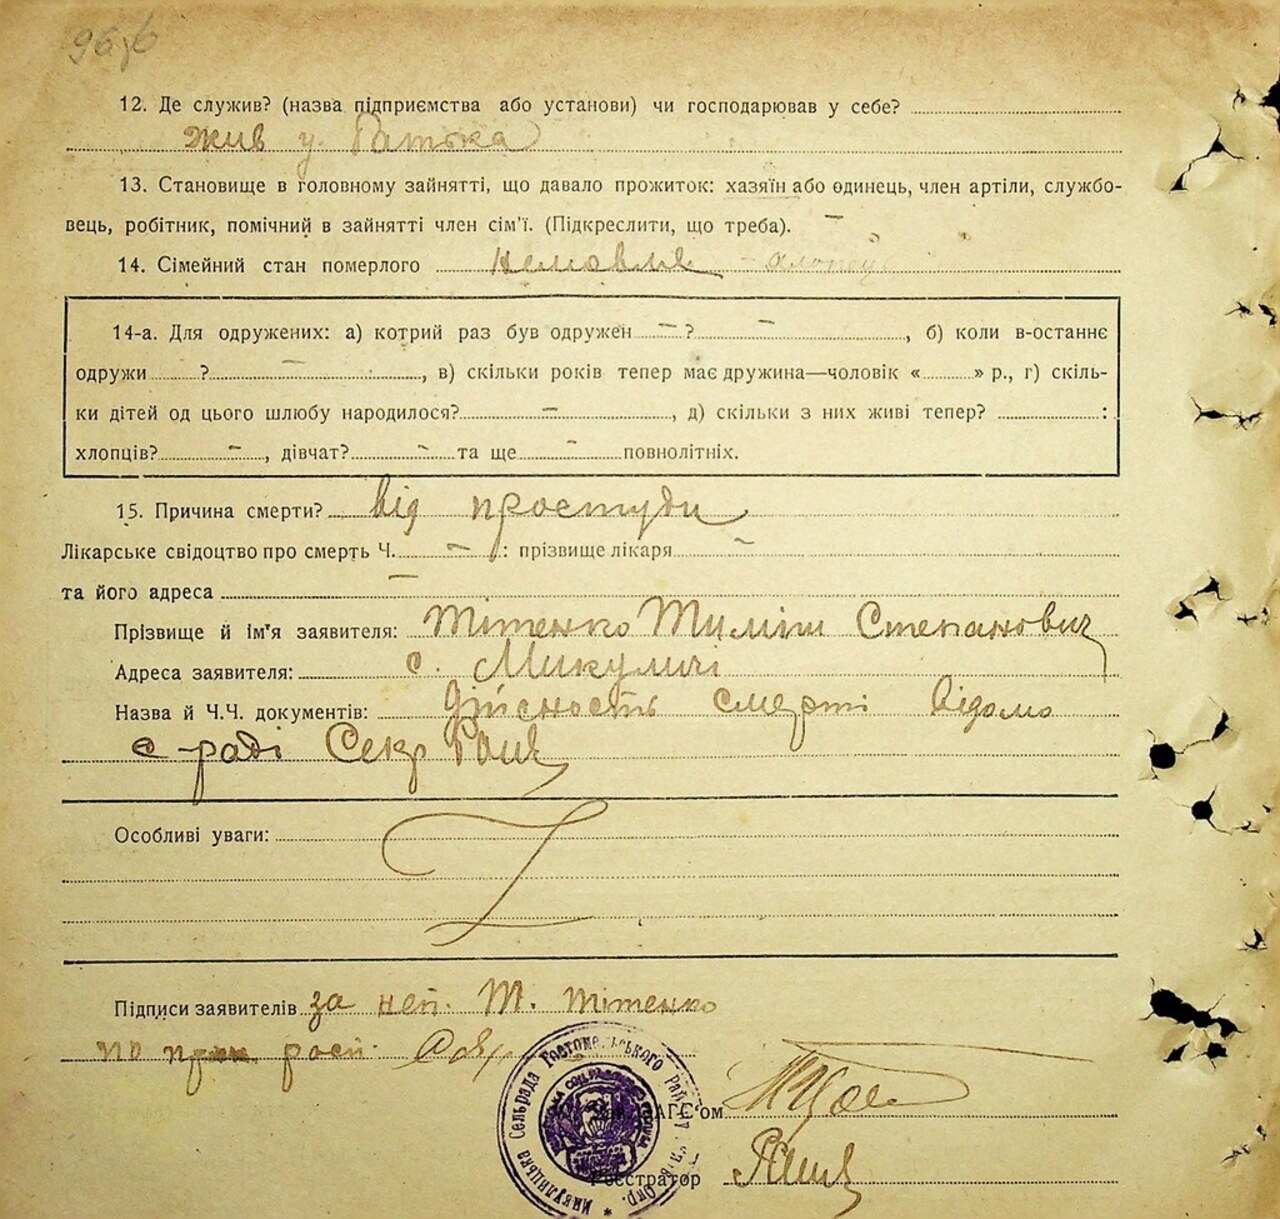 12. Де служив? (назва підприємства або установи) чи господарював у себе?
жив у батька
13. Становище в головному зайнятті, що давало прожиток: хазяїн або одинець, член артіли, службо-
вець, робітник, помічний в зайнятті член сім'ї. (Підкреслити, що треба). —
14. Сімейний стан померлого немовля - хлопець
14-а. Для одружених: а) котрий раз був одружен — ? —, б) коли в-останнє
одружи ? —, в) скільки років тепер має дружина—чоловік « » р., г) скіль-
ки дітей од цього шлюбу народилося? —, д) скільки з них живі тепер? :
хлопців? —, дівчат? — та ще — повнолітніх.
15. Причина смерти? від простуди
Лікарське свідоцтво про смерть Ч. — : прізвище лікаря —
та його адреса —
Прізвище й ім'я заявителя: Тітенко Тиміш Степанович
Адреса заявителя: с. Микуличі
Назва й Ч.Ч. документів: Дійсность смерті відомо
с-раді Секр
Особливі уваги:
Підписи заявителів за неп. Т. Тітенко
по росп.
Микулицька Сельрада Гостомельського Району
АГС'ом
Реєстратор